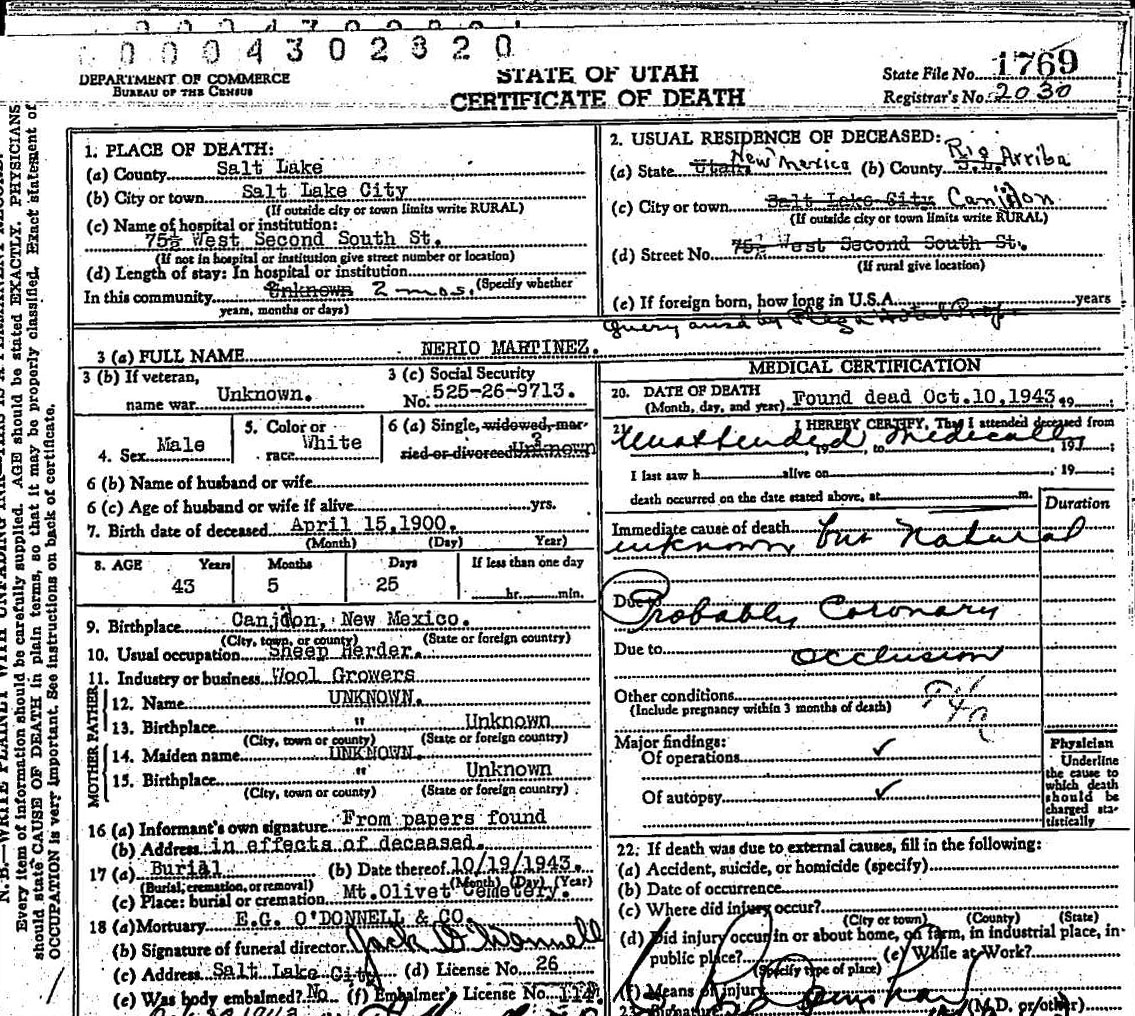 0004302820
DEPARTMENT OF COMMERCE
BUREAU OF THE CENSUS
STATE OF UTAH
CERTIFICATE OF DEATH
State File No. 1769
Registrar's No. 2030
1. PLACE OF DEATH:
(a) County Salt Lake
(b) City or town Salt Lake City
(If outside city or town limits write RURAL)
(c) Name of hospital or institution:
75½ West Second South St.
(If not in hospital or institution give street number or location)
(d) Length of stay: In hospital or institution
(Specify whether
In this community Unknown 2 mos.
years, months or days)
2. USUAL RESIDENCE OF DECEASED:
(a) State Utah New Mexico (b) County S.L. Rio Arriba
(c) City or town Salt Lake City Canjilon
(If outside city or town limits write RURAL)
(d) Street No. 75½ West Second South St.
(If rural give location)
(e) If foreign born, how long in U.S.A. years
Query ansd by Plaza Hotel Prop.
3 (a) FULL NAME NERIO MARTINEZ.
3 (b) If veteran,
name war Unknown.
3 (c) Social Security
No. 525-26-9713.
4. Sex Male
5. Color or
race White
6 (a) Single, widowed, mar-
ried or divorced Unknown ?
6 (b) Name of husband or wife
6 (c) Age of husband or wife if alive yrs.
7. Birth date of deceased April 15, 1900.
(Month) (Day) Year)
8. AGE Years Months Days If less than one day
43 5 25 hr. min.
9. Birthplace Canjilon, New Mexico.
(City, town, or county) (State or foreign country)
10. Usual occupation Sheep Herder.
11. Industry or business Wool Growers
FATHER
12. Name UNKNOWN.
13. Birthplace " Unknown
(City, town or county) (State or foreign country)
MOTHER
14. Maiden name UNKNOWN.
15. Birthplace " Unknown
(City, town or county) (State or foreign country)
16 (a) Informant's own signature From papers found
(b) Address in effects of deceased.
17 (a) Burial (b) Date thereof 10/19/1943.
(Burial, cremation, or removal) (Month) (Day) (Year)
(c) Place: burial or cremation Mt. Olivet Cemetery.
18 (a) Mortuary E.G. O'DONNELL & CO.
(b) Signature of funeral director Jack O'Donnell
(c) Address Salt Lake City (d) License No. 26
(e) Was body embalmed? No (f) Embalmer's License No. 114.
MEDICAL CERTIFICATION
20. DATE OF DEATH
(Month, day, and year) Found dead Oct. 10, 1943, 19
21. I HEREBY CERTIFY, That I attended deceased from
Unattended Medically, 19 , to , 19 ;
I last saw h alive on , 19 ;
death occurred on the date stated above, at m.
Duration
Immediate cause of death
unknown but Natural
Due to Probably Coronary
Due to occlusion
Other conditions
(Include pregnancy within 3 months of death)
Major findings:
Of operations ✓
Of autopsy ✓
Physician
Underline
the cause to
which death
should be
charged sta-
tistically
22. If death was due to external causes, fill in the following:
(a) Accident, suicide, or homicide (specify)
(b) Date of occurrence
(c) Where did injury occur?
(City or town) (County) (State)
(d) Did injury occur in or about home, on farm, in industrial place, in-
public place? (e) While at Work?
(Specify type of place)
(f) Means of injury
23. Signature (M.D. or other)
N. B.—WRITE PLAINLY WITH UNFADING INK—THIS IS A PERMANENT RECORD.
Every item of information should be carefully supplied. AGE should be stated EXACTLY. PHYSICIANS
should state CAUSE OF DEATH in plain terms, so that it may be properly classified. Exact statement of
OCCUPATION is very important. See instructions on back of certificate.